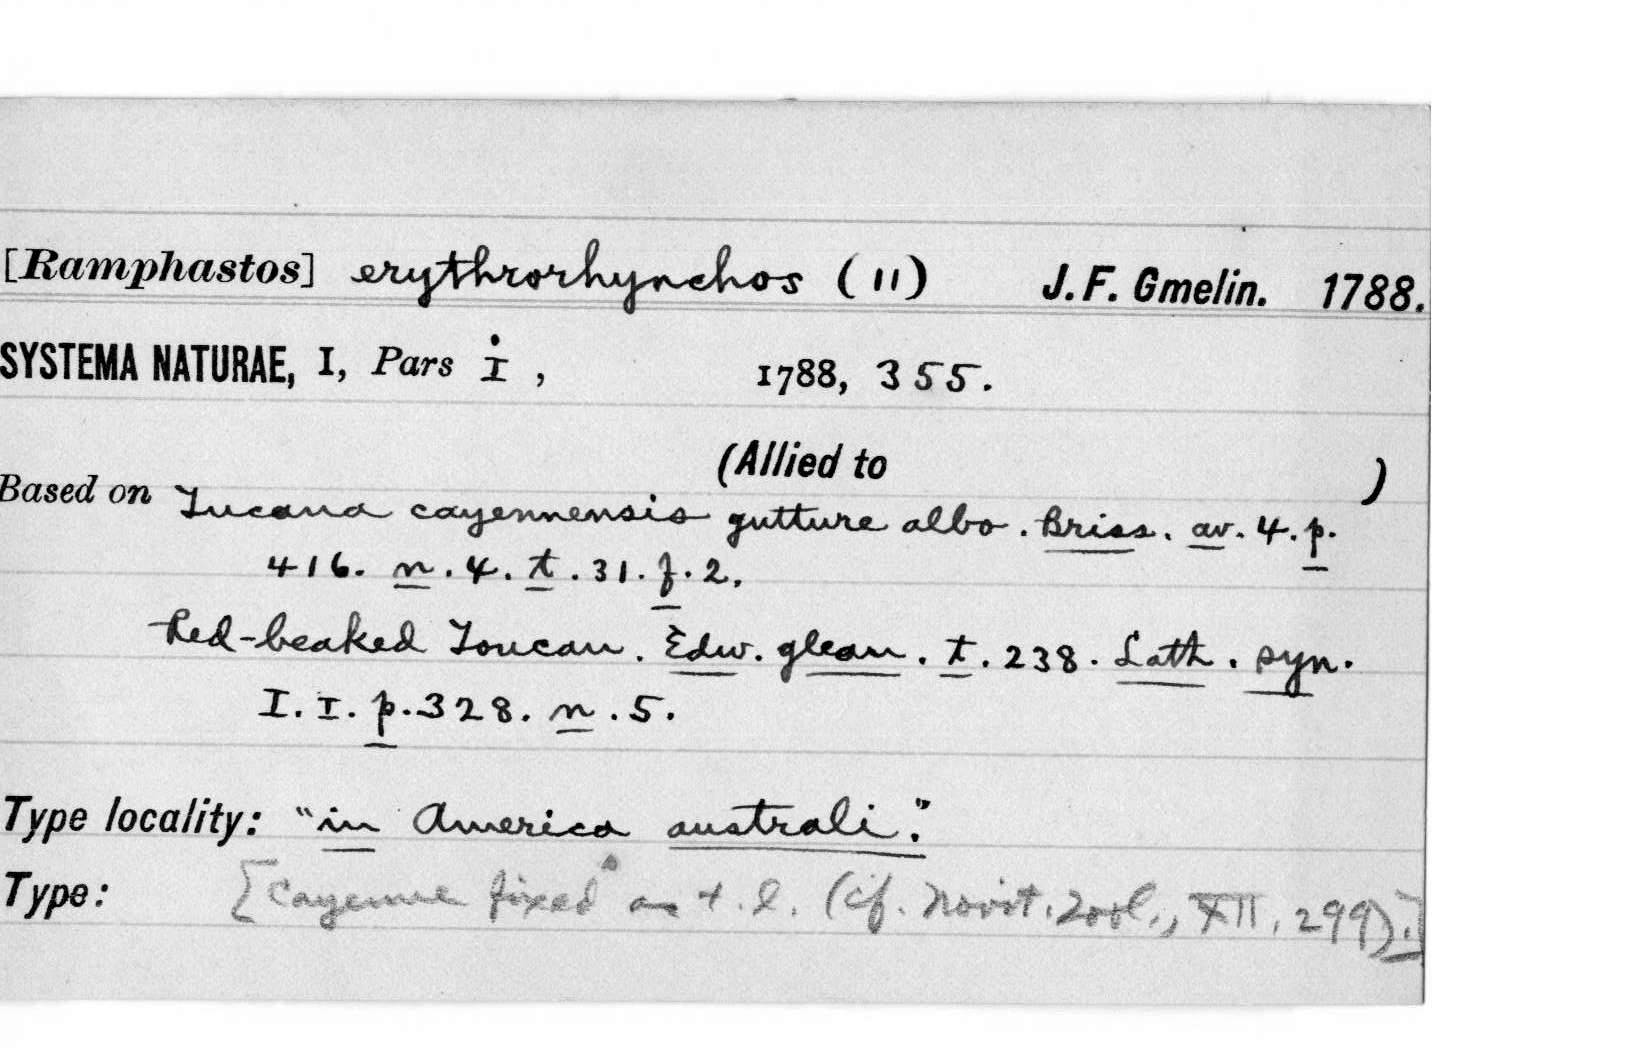 [Ramphastos] erythrorhynchos (11) J. F. Gmelin. 1788.
SYSTEMA NATURAE, I, Pars i, 1788, 355.
(Allied to )
Based on Tucana cayennensis gutture albo. Briss. av. 4. p.
416. n. 4. t. 31. f. 2.
Red-beaked Toucan. Edw. glean. t. 238. Lath. syn.
I. I. p. 328. n. 5.
Type locality: "in America australi."
Type: [Cayenne fixed as t. l. (cf. Novit. Zool., XII, 299).]